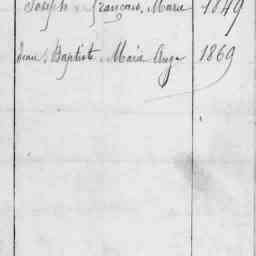 Joseph François, Marie 1849
Jean, Baptiste, Marie Ange 1869